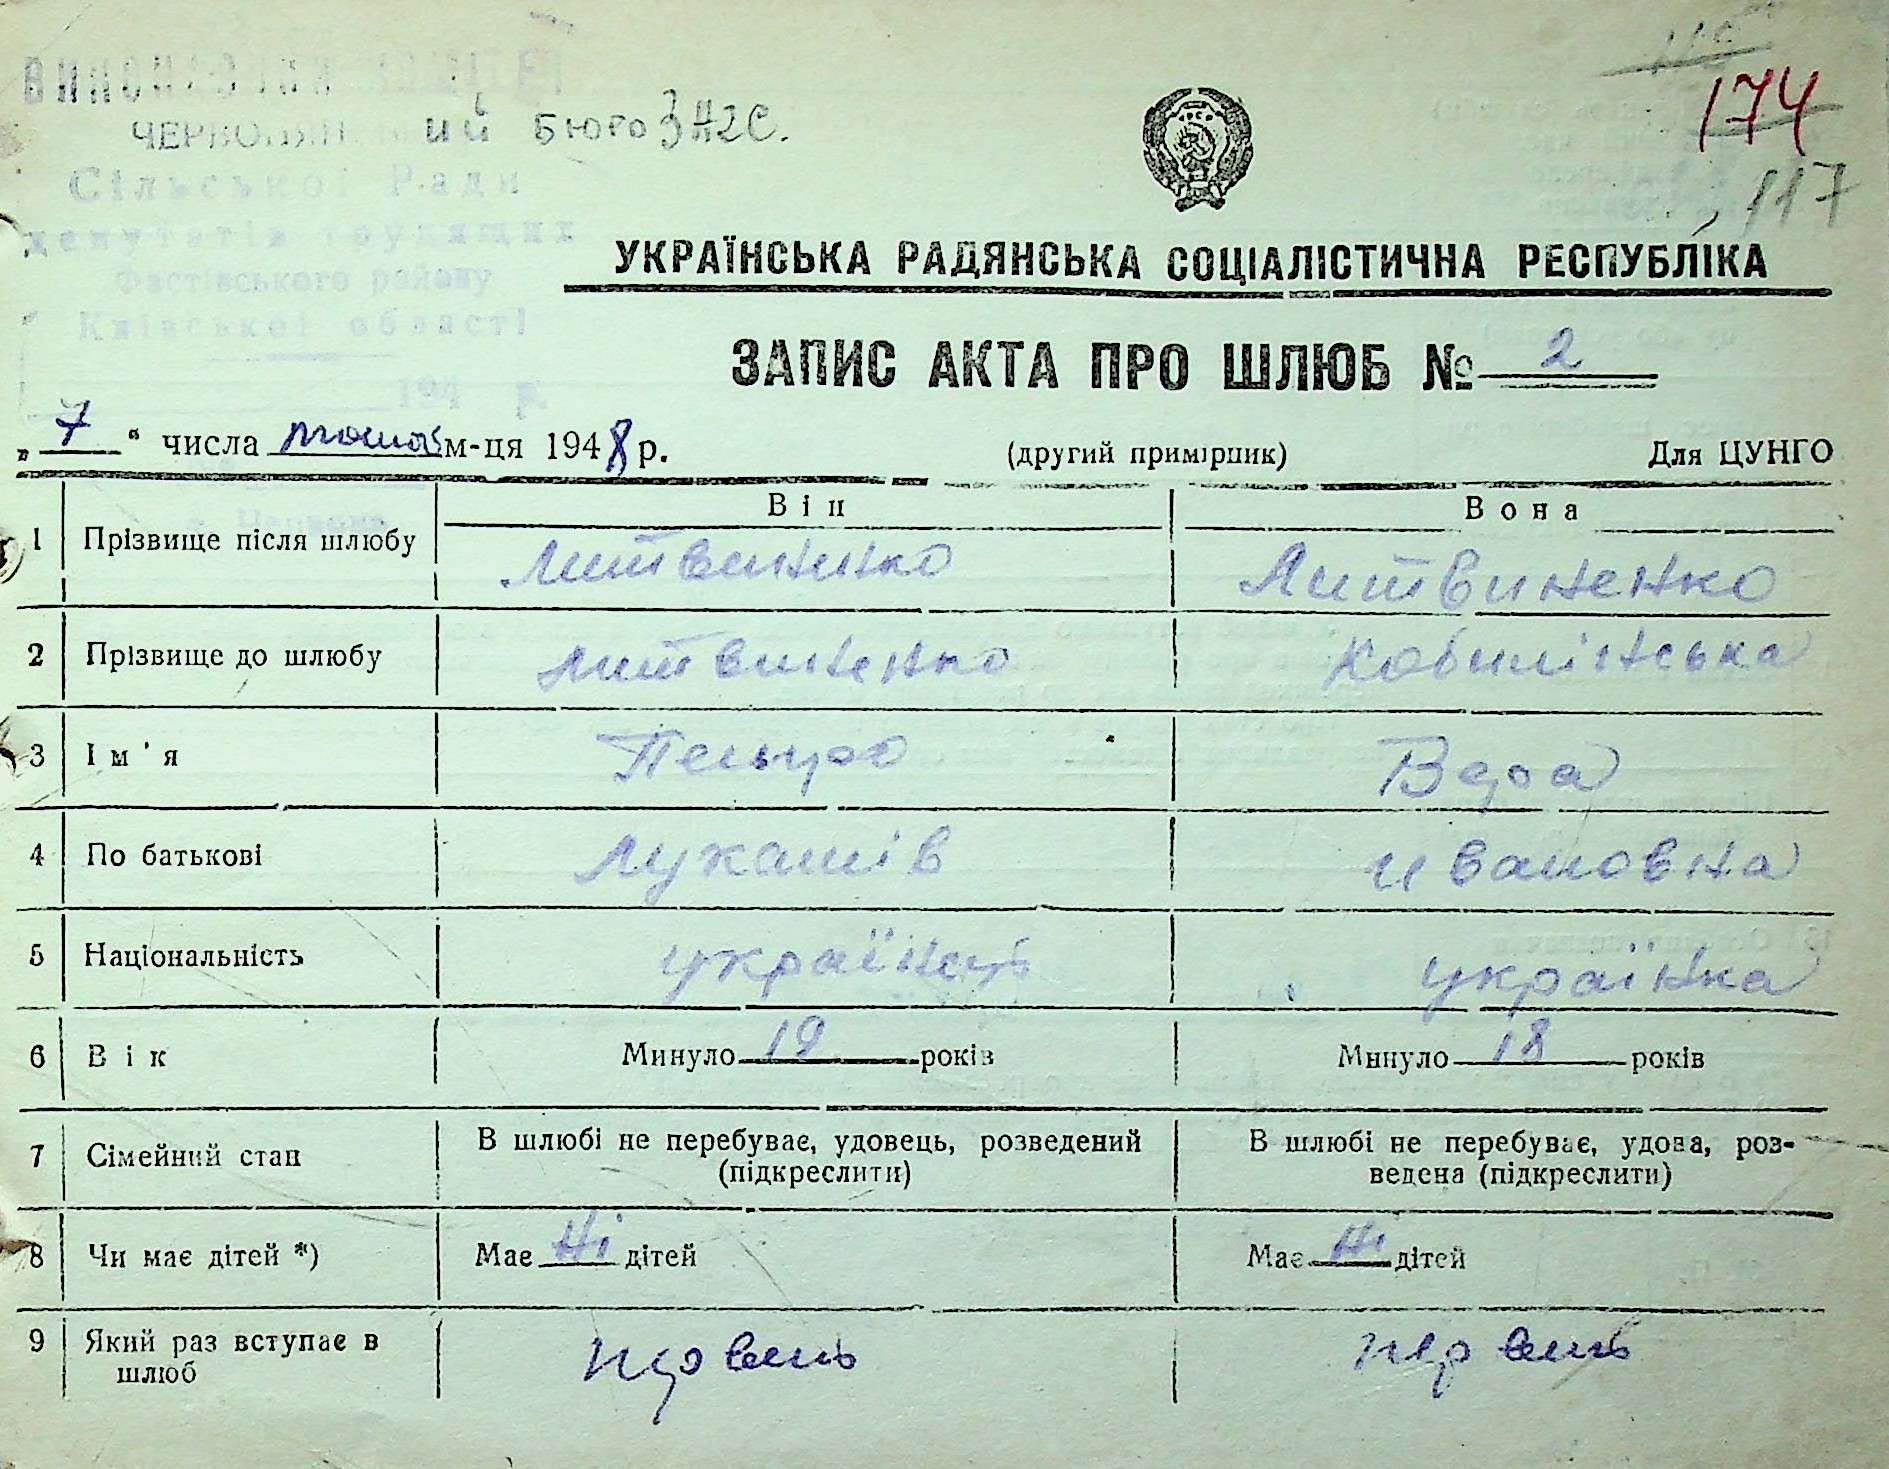 174
117
ВИКОНАВЧИЙ КОМІТЕТ
ий бюро ЗАГС.
Сільської Ради
депутатів трудящих
Фастівського району
Київської області
194 р.
УКРАЇНСЬКА РАДЯНСЬКА СОЦІАЛІСТИЧНА РЕСПУБЛІКА
ЗАПИС АКТА ПРО ШЛЮБ № 2
„7“ числа м-ця 1948 р. (другий примірник) Для ЦУНГО
Він Вона
1 Прізвище після шлюбу Литвиненко Литвиненко
2 Прізвище до шлюбу Литвиненко Кобилінська
3 Ім'я Петро Вера
4 По батькові Лукашів Ивановна
5 Національність українець українка
6 Вік Минуло 19 років Минуло 18 років
7 Сімейний стан В шлюбі не перебуває, удовець, розведений В шлюбі не перебуває, удова, роз-
(підкреслити) ведена (підкреслити)
8 Чи має дітей *) Має Ні дітей Має Ні дітей
9 Який раз вступає в
шлюб